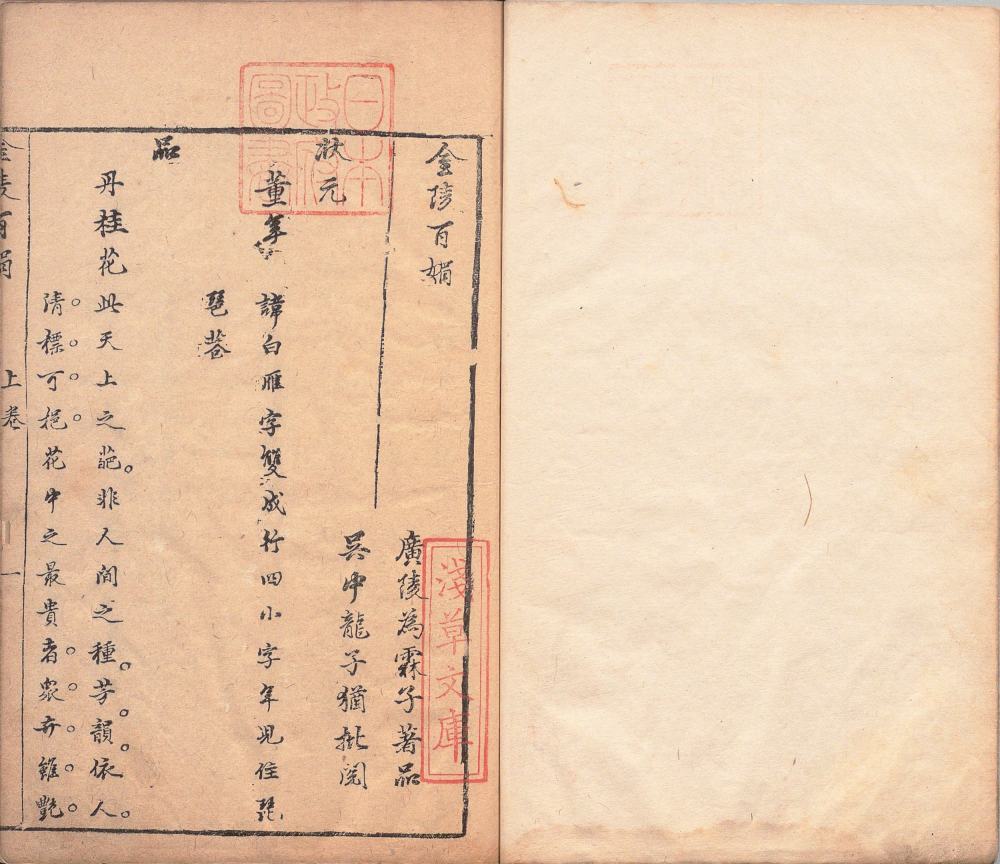 金陵百媚
廣陵為霖子著品
吳中龍子猶批閱
狀元
董年 諱白雁字雙成行四小字年兒住琵
琶巷
品
丹桂花 此天上之葩。非人間之種。芳韻。依。人。
清。標。可。挹。花中之最貴者。眾。卉。雖。艷。
金陵百媚 上卷 一
日本
政府
圖書
淺草文庫